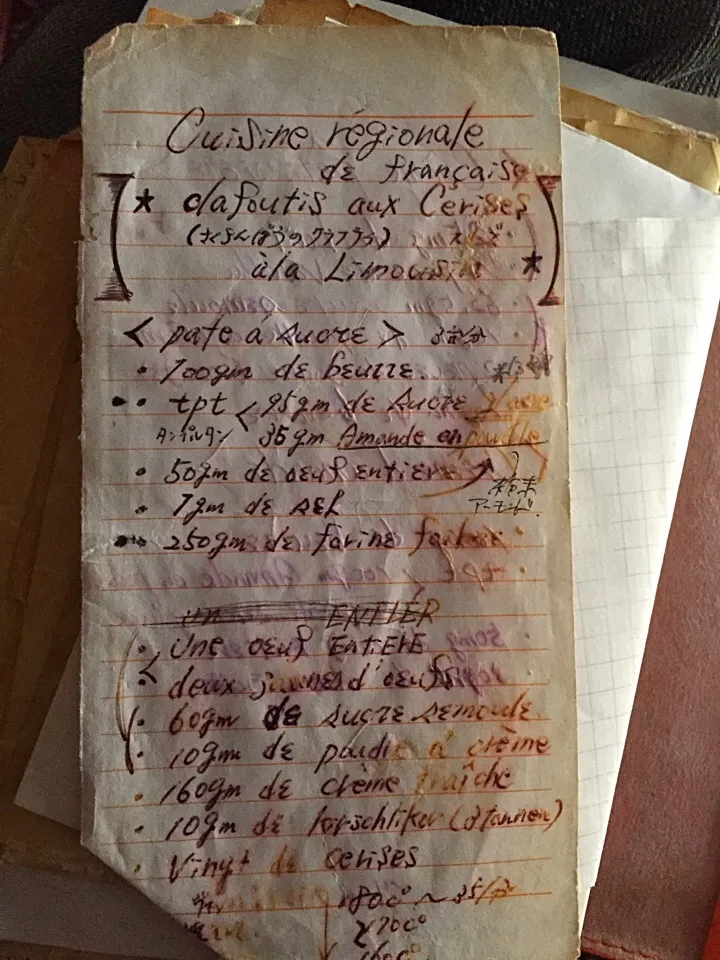 Cuisine régionale
de française
★ clafoutis aux Cerises
(さくらんぼうのクラフティ)
à la Limousin ★
< pate à sucre > 3台分
• 100gm de beurre
•• tpt < 95gm de sucre glace
タンプルタン 35gm Amande en poudre
• 50gm de oeuf entière
粉末
アーモンド
• 7gm de sel
•• 250gm de farine faible
un ENTIER
• Une oeuf EntiERE
• deux jaunes d'oeufs
• 60gm de sucre semoule
• 10gm de poudre à crème
• 160gm de crème fraîche
• 10gm de kirschlikor
• Vingt de cerises
1800° ~ 35分
1700°
1600°